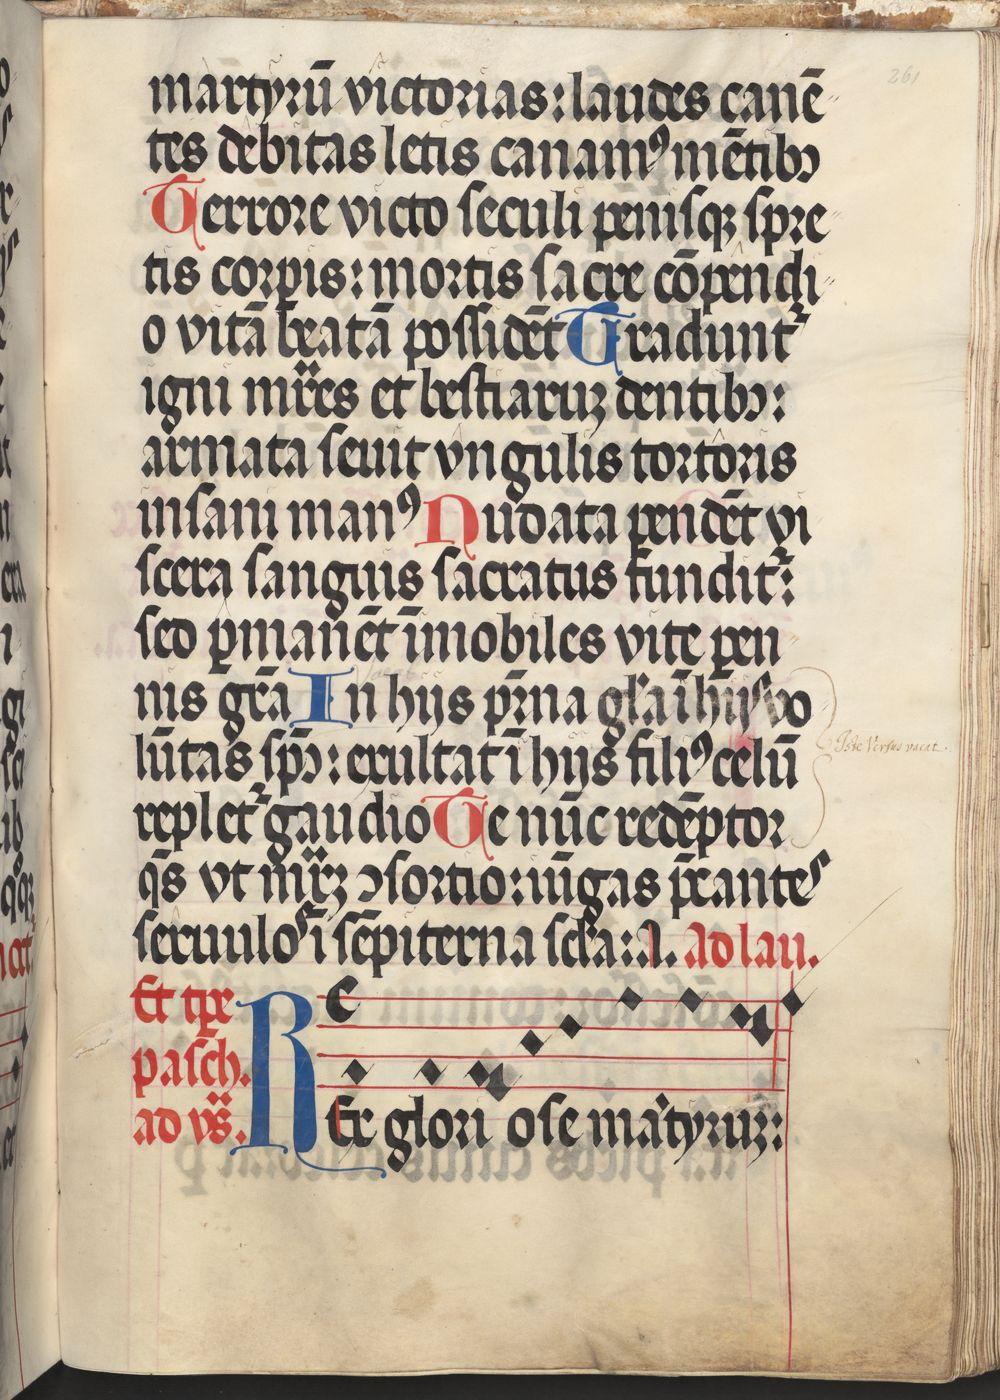 261
martyrū victorias: laudes canē
tes debitas letis canamꝰ mētibꝫ
Terrore victo seculi penisqꝫ spre
tis corꝑis: mortis sacre cōpendi
o vitā beatā possidēt Tradunt᷑
igni mr̄ես et bestiaruꝫ dentibꝫ:
armata seuit vngulis tortoris
insani manꝰ Nudata pendēt vi
scera sanguis sacratus fundit᷑:
sed ꝑmanēt īmobiles vite ꝑen
nis gr̄a In hijs pr̄na gl̄a ī hijs vo
lūtas sp̄s: exultat ī hijs filiꝰ celū
replet᷑ gaudio Te nūc redēptor
qs̄ vt mr̄ꝝ ꝯsortio: iūgas p̄cantes
seruulos ī sēpiterna scl̄a: A. Ad lau.
Iste Versus vacat.
Et tꝑe
pasch.
ad vs̄.
REx gloriose mārtyruꝫ: